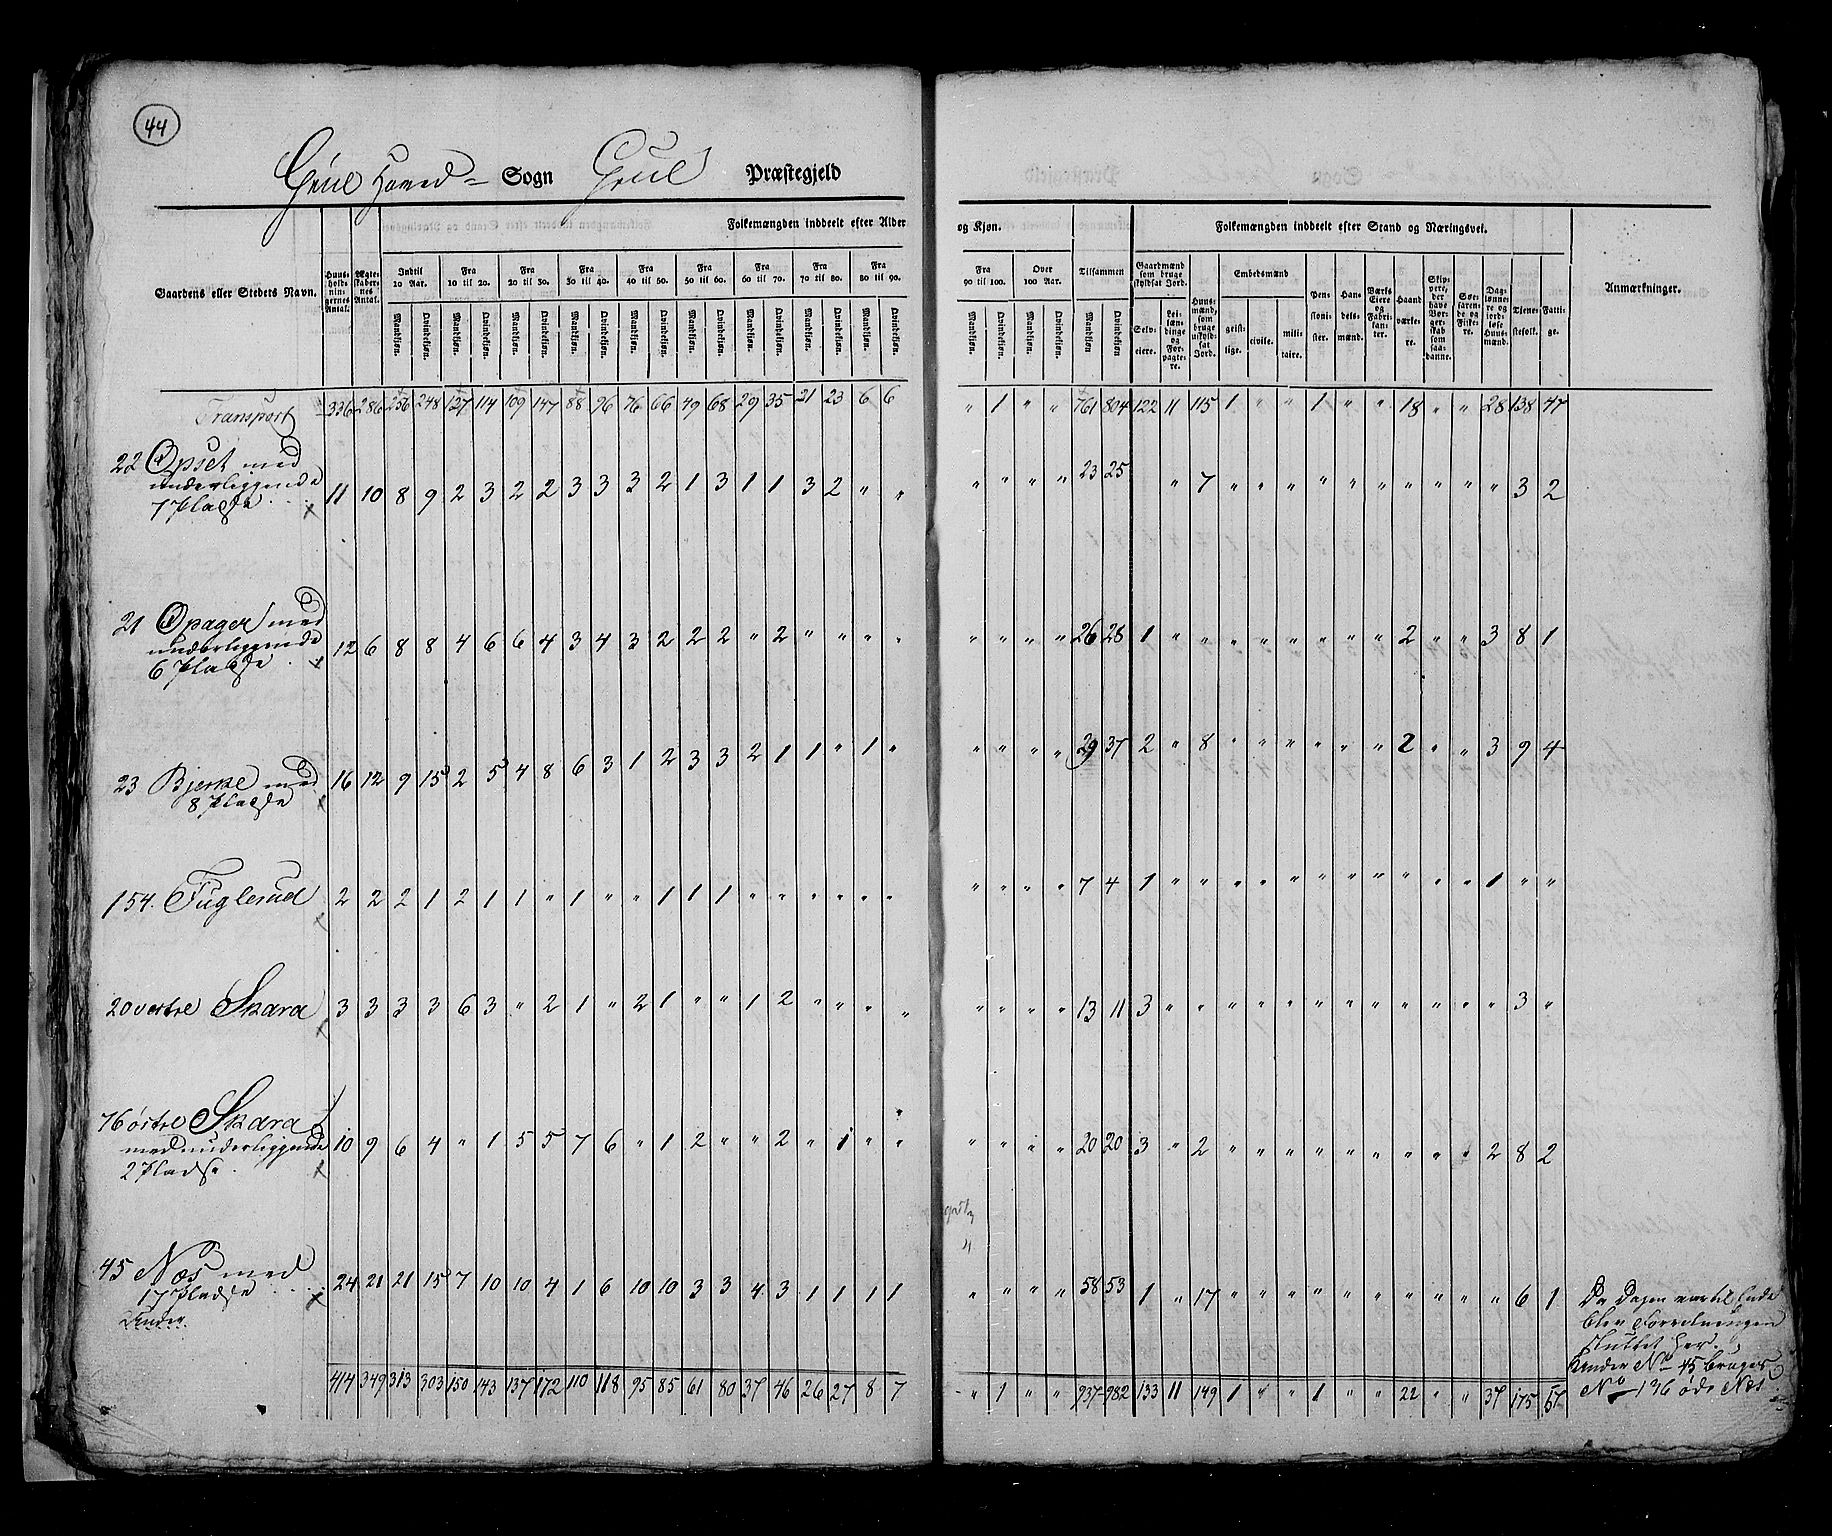 44
Grue Hoved- Sogn Grue Præstegjeld
Folkemængden inddeelt efter Alder og Kjøn. Folkemængden inddeelt efter Stand og Næringsvei.
Gaardens eller Stedets Navn. Huusholdningernes Antal. Ægteskabernes Antal. Indtil 10 Aar. Fra 10 til 20. Fra 20 til 30. Fra 30 til 40. Fra 40 til 50. Fra 50 til 60. Fra 60 til 70. Fra 70 til 80. Fra 80 til 90. Fra 90 til 100. Over 100 Aar. Tilsammen Gaardmænd som bruge skyldsat Jord. Huusmænd, som bruge uskyldsat Jord. Embedsmænd Pensionister. Handelsmænd. Værks Eiere og Fabrikanter. Haandværkere. Skippere, der have Borgerskab som saadanne. Søefarende og Fiskere. Daglønnere og jordløse Huusmænd. Tjenestefolk. Fattige. Anmærkninger.
Mandkjøn. Qvindekjøn. Mandkjøn. Qvindekjøn. Mandkjøn. Qvindekjøn. Mandkjøn. Qvindekjøn. Mandkjøn. Qvindekjøn. Mandkjøn. Qvindekjøn. Mandkjøn. Qvindekjøn. Mandkjøn. Qvindekjøn. Mandkjøn. Qvindekjøn. Mandkjøn. Qvindekjøn. Mandkjøn. Qvindekjøn. Mandkjøn. Qvindekjøn. Selveiere. Leilændinge og Forpagtere. geistlige. civile. militaire.
Transport 336 286 256 248 127 114 109 147 88 96 76 66 49 68 29 35 21 23 6 6 " 1 " " 761 804 122 11 115 1 " " 1 " " 18 " " 28 138 47
22 Opset med
underliggende
7 Pladse 11 10 8 9 2 3 2 2 3 3 3 2 1 3 1 1 3 2 " " " " " " 23 25 " 7 " " " " " " " " " " 3 2
21 Opager med
underliggende
6 Pladse 12 6 8 8 4 6 6 4 3 4 3 2 2 2 " 2 " " " " " " " " 26 28 1 " " " " " " " " 2 " " 3 8 1
23 Bjerke med
8 Pladse 16 12 9 15 2 5 4 8 6 3 1 2 3 3 2 1 1 " 1 " " " " " 29 37 2 " 8 " " " " " " 2 " " 3 9 4
154. Fuglerud 2 2 2 1 2 1 1 " 1 " " 1 1 1 " " " " " " " " " " 7 4 1 " " " " " " " " " " " 1 " "
20 vestre Skara 3 3 3 3 6 3 " 2 1 " 2 1 " " 1 2 " " " " " " " " 13 11 3 " " " " " " " " " " " " 3 "
76 østre Skara
med underliggende
2 Pladse. 10 9 6 4 " 1 5 5 7 6 " 1 2 " " 2 " 1 " " " " " " 20 20 3 " 2 " " " " " " " " " 2 8 2
45 Næs med
17 Pladse 24 21 21 15 7 10 10 4 1 6 10 10 3 3 4 3 1 1 1 1 " " " " 58 53 1 " 17 " " " " " " " " " " 6 1
Under
Da Dagen var til Ende
blev Forretningen
sluttet her.
Under No 45 bruges
No 136 øde Næs
414 349 313 303 150 143 137 172 110 118 95 85 61 80 37 46 26 27 8 7 " 1 " " 937 982 133 11 149 1 " " 1 " " 22 " " 37 175 57